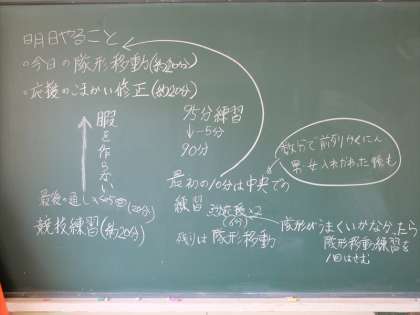 明日やること
・今日の隊形移動(約20分)
・応援のこまかい修正(約20分)
暇を作らない
最後の通し (20分)
競技練習(約20分)
95分練習
↓-5分
90分
最初の10分は中央での
練習
残りは隊形移動
数分で前列かくにん
男女入れかわった時も
隊形がうまくいかなかったら
隊形移動練習を
1回はさむ